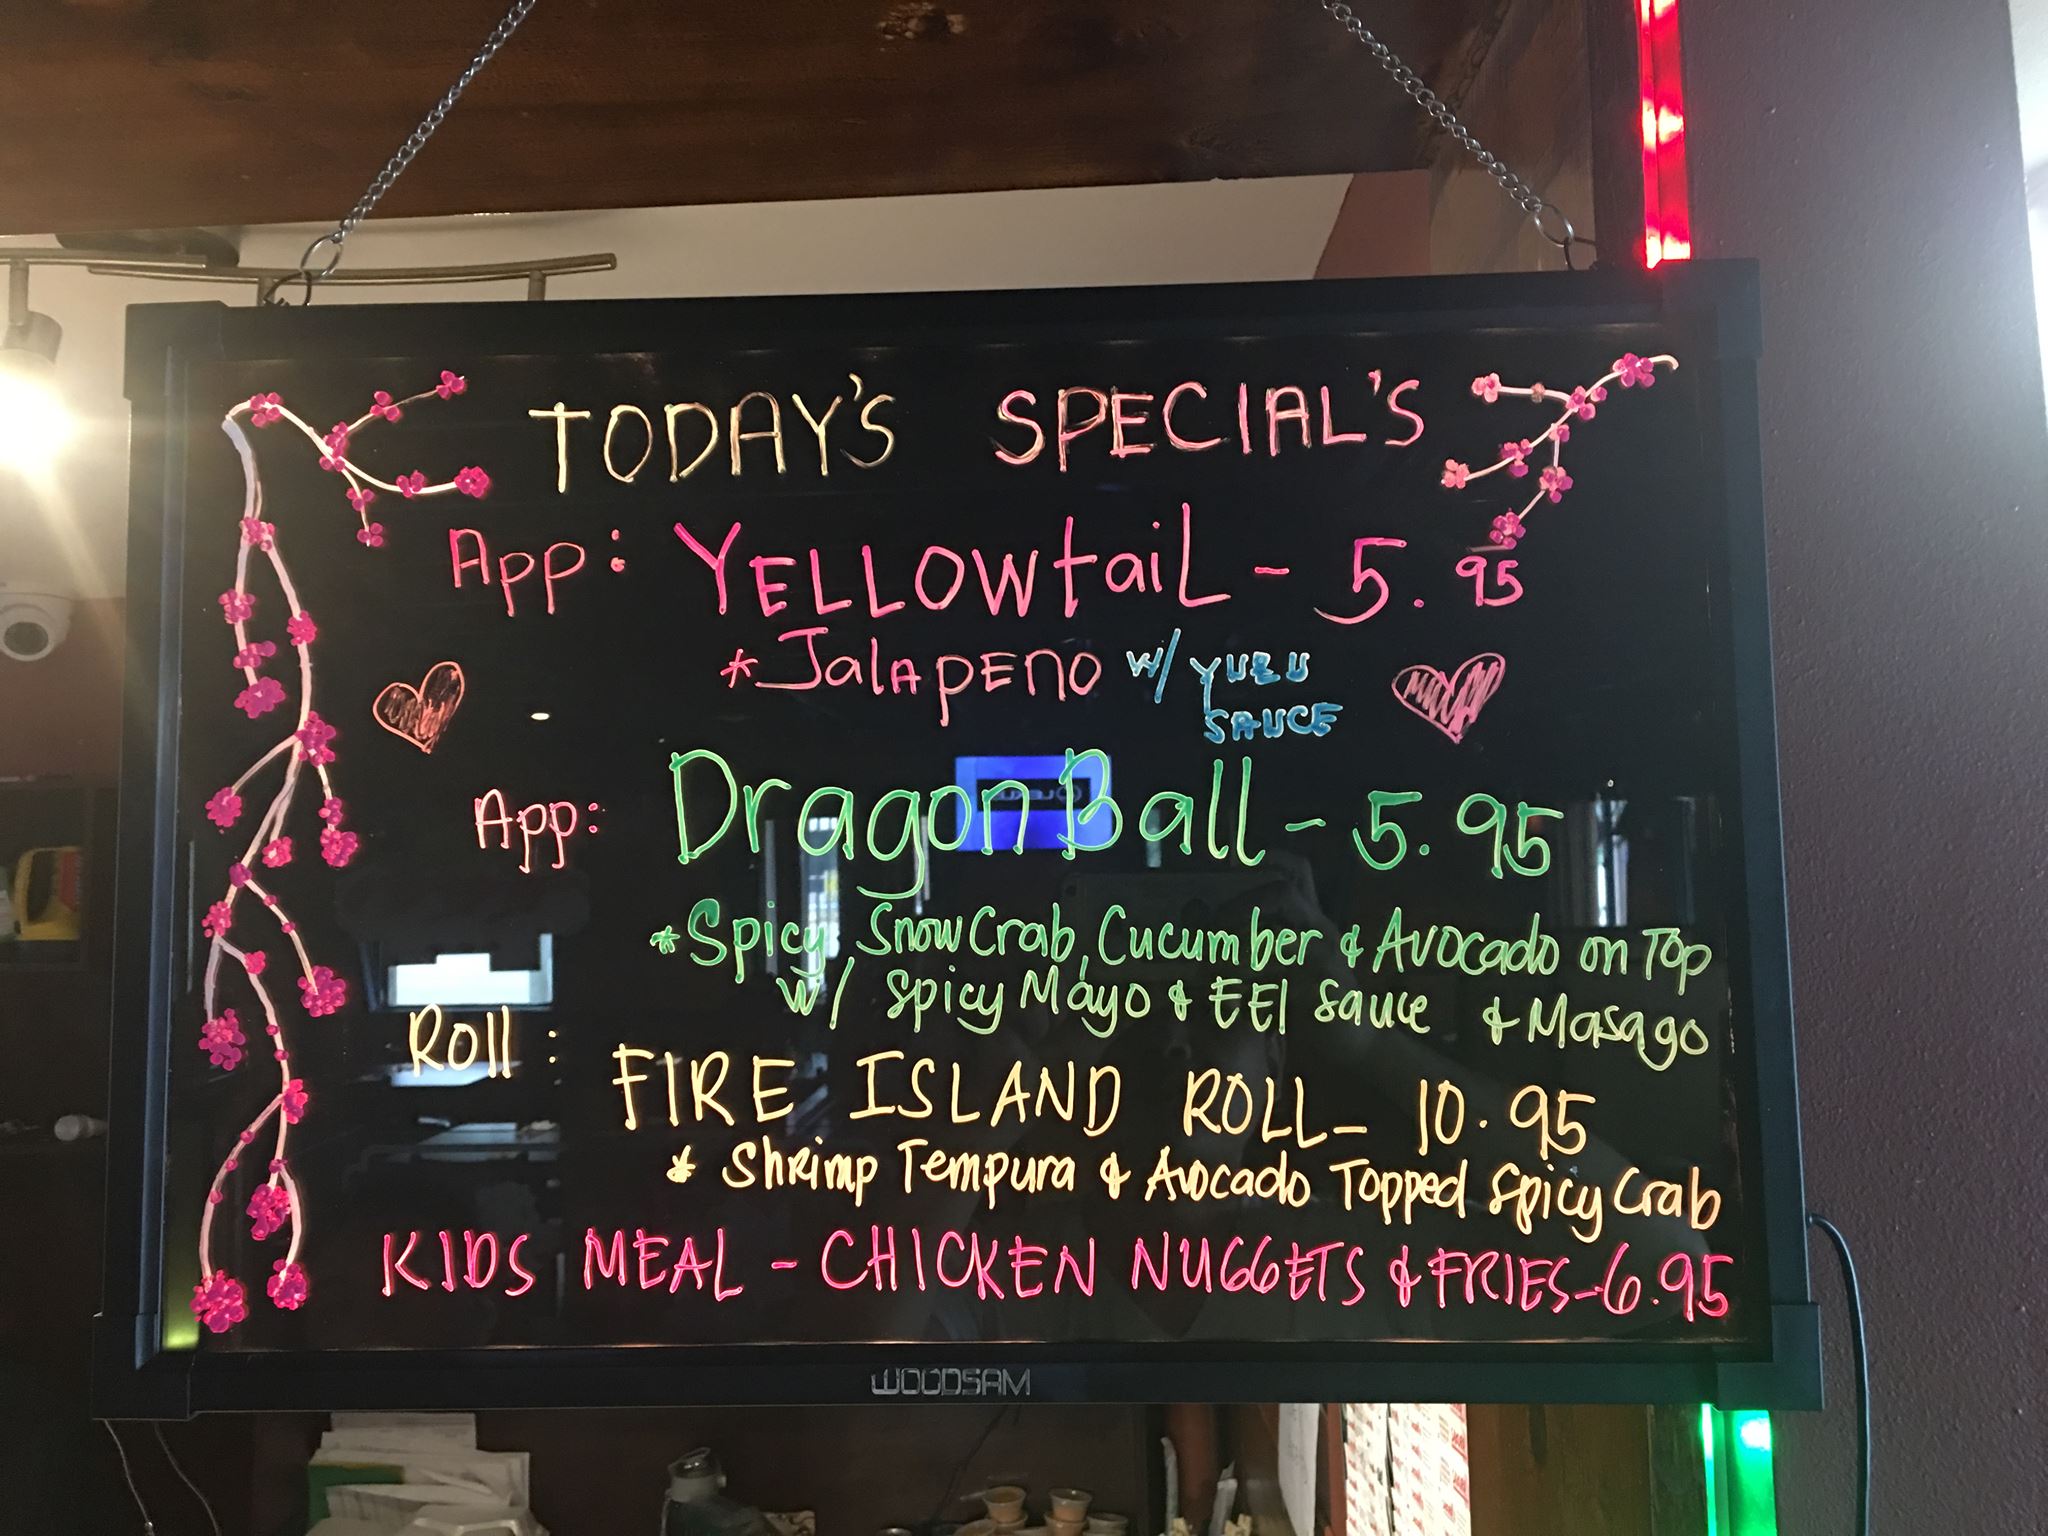 TODAY'S SPECIAL'S
App: YELLOWtaiL - 5.95
*JalAPENO w/ YUZU
SAUCE
App: Dragon Ball - 5.95
*Spicy, SnowCrab, Cucumber & Avocado on Top
w/ Spicy Mayo & EEl Sauce & Masago
Roll :
FIRE ISLAND ROLL - 10.95
* Shrimp Tempura & Avocado Topped Spicy Crab
KIDS MEAL - CHICKEN NUGGETS & FRIES - 6.95
WOODSAM